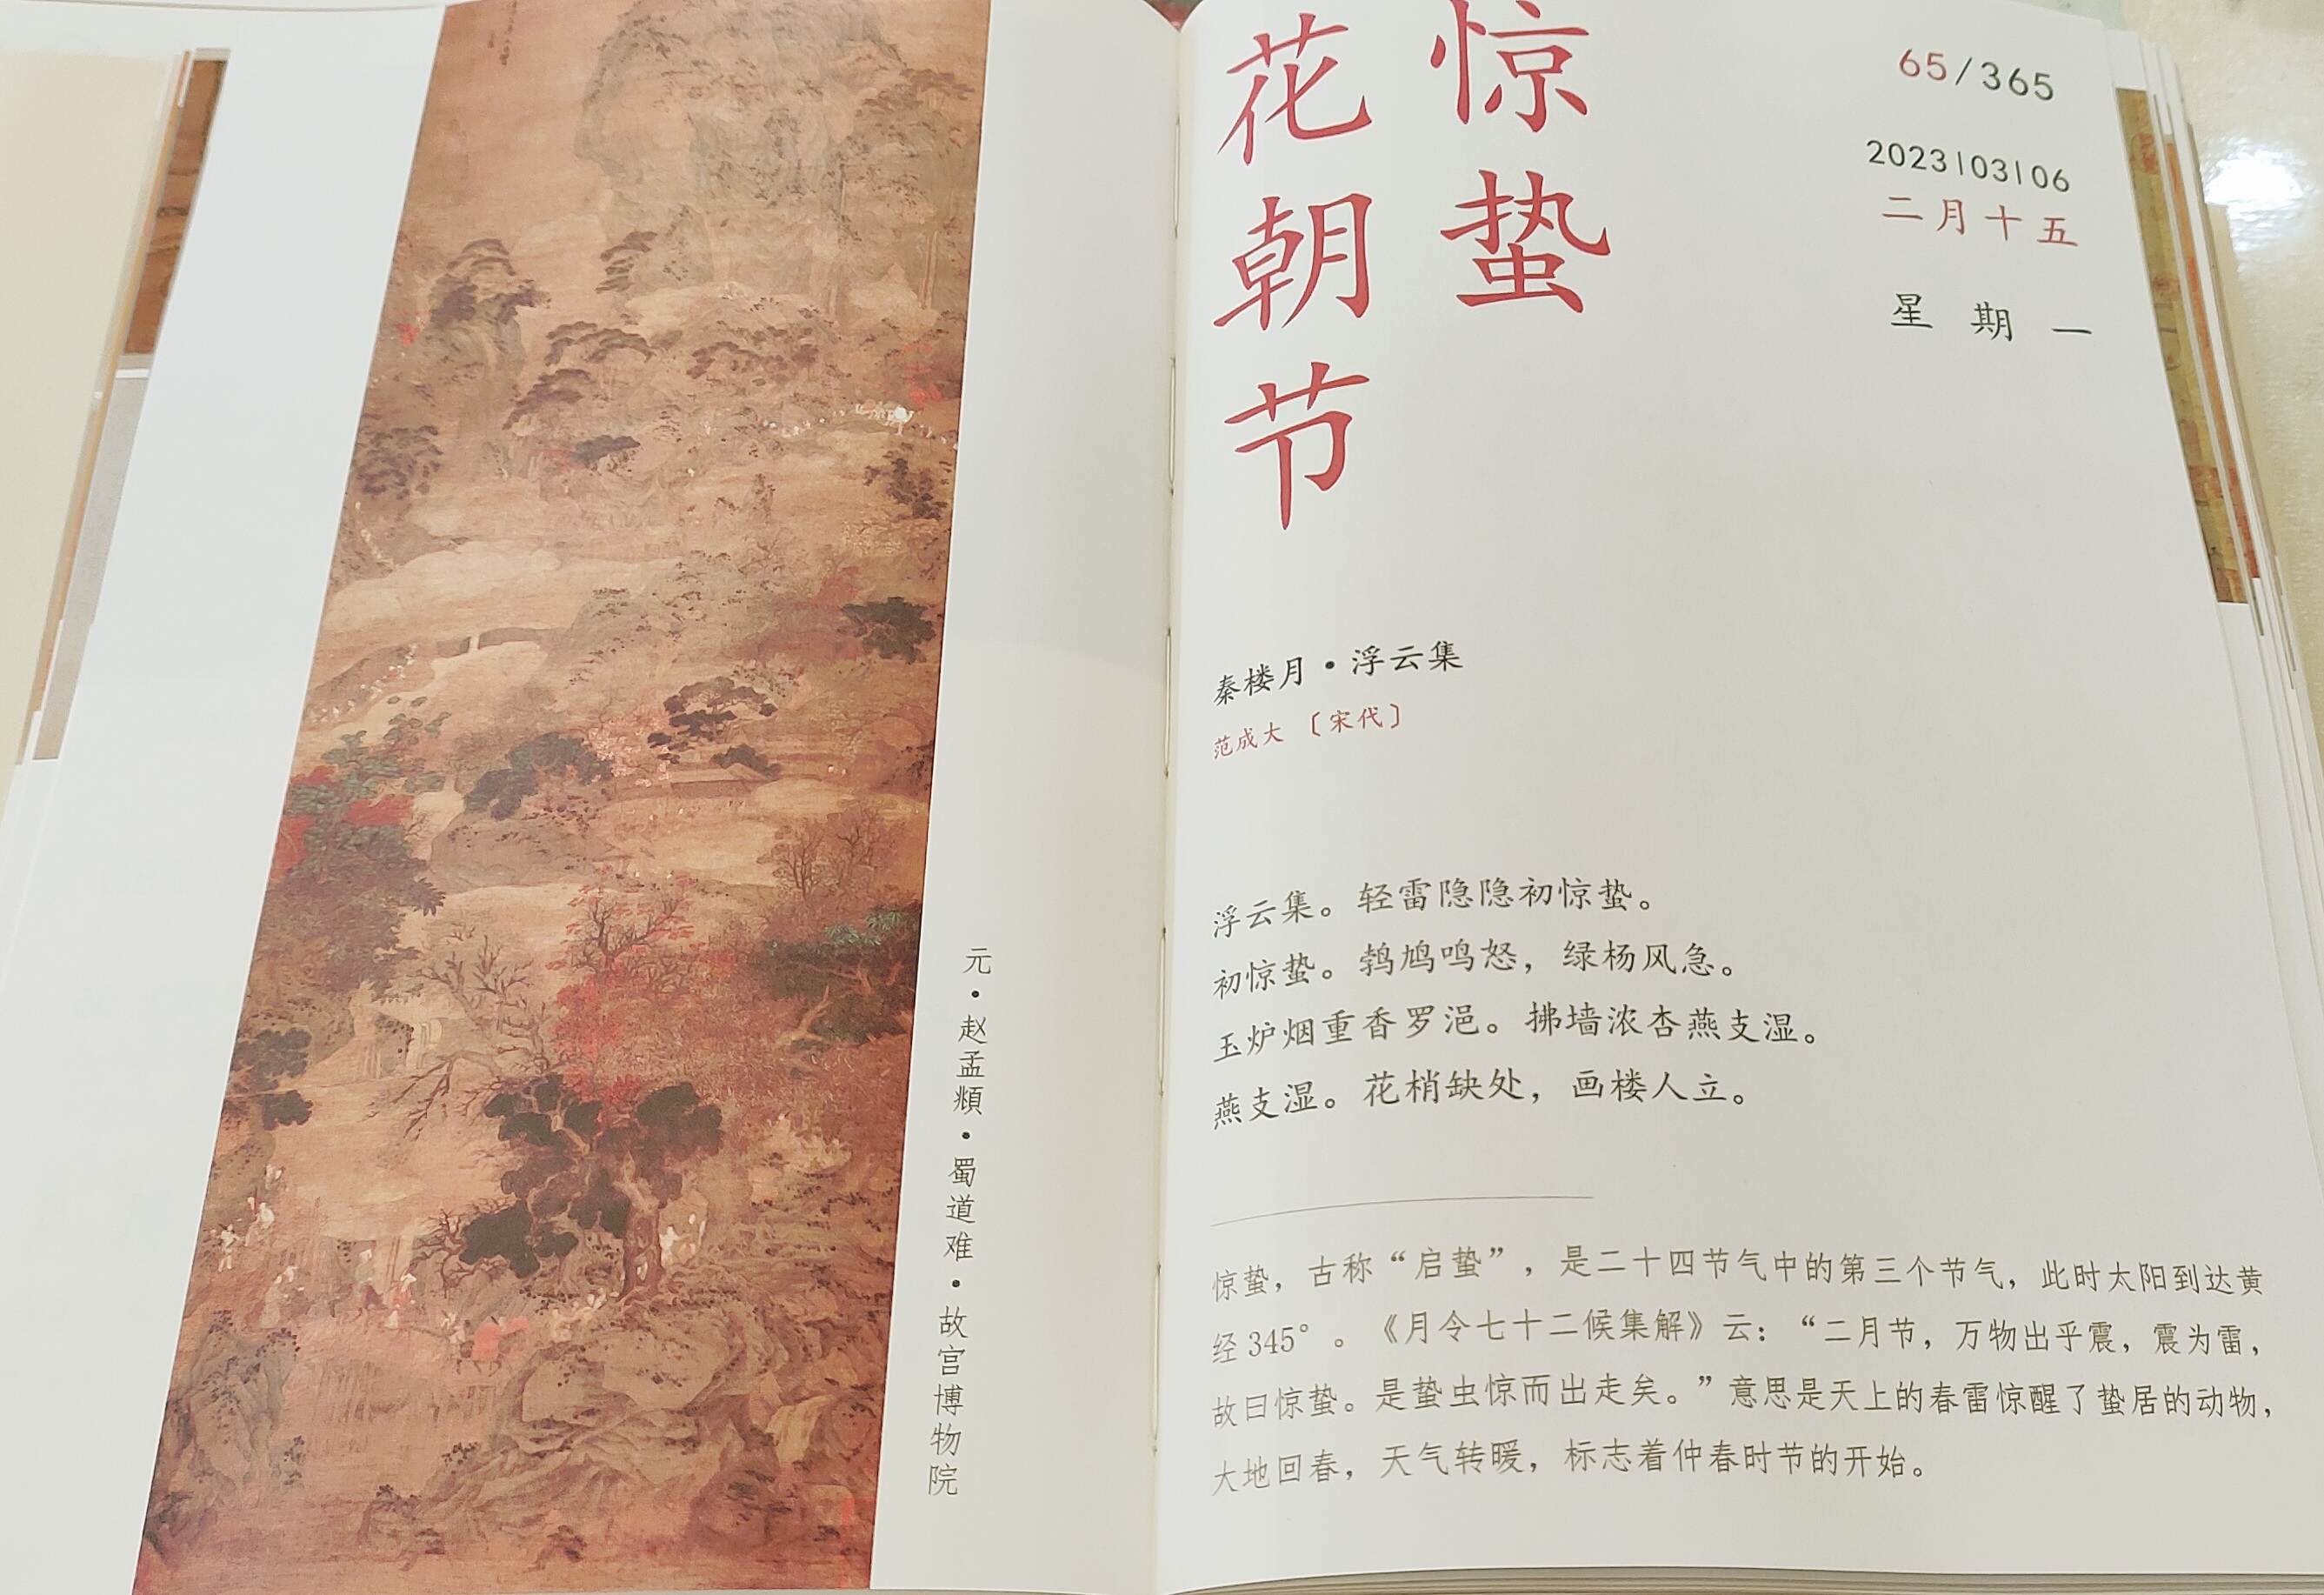 元·赵孟頫·蜀道难·故宫博物院
惊蛰
花朝节
65/365
2023|03|06
二月十五
星期一
秦楼月·浮云集
范成大〔宋代〕
浮云集。轻雷隐隐初惊蛰。
初惊蛰。鹁鸠鸣怒，绿杨风急。
玉炉烟重香罗浥。拂墙浓杏燕支湿。
燕支湿。花梢缺处，画楼人立。
惊蛰，古称“启蛰”，是二十四节气中的第三个节气，此时太阳到达黄
经 345°。《月令七十二候集解》云：“二月节，万物出乎震，震为雷，
故曰惊蛰。是蛰虫惊而出走矣。”意思是天上的春雷惊醒了蛰居的动物，
大地回春，天气转暖，标志着仲春时节的开始。